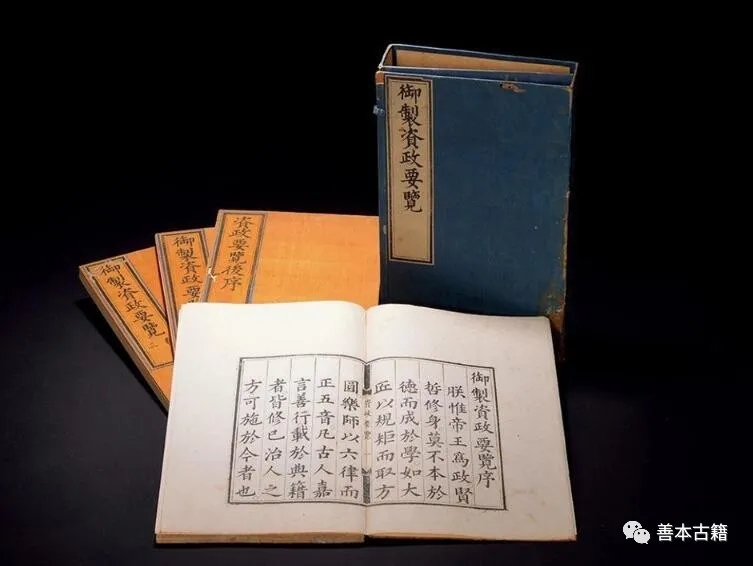 御製資政要覽
資政要覽後序
御製資政要覽
御製資政要覽
御製資政要覽序
朕惟帝王爲政賢
哲修身莫不本於
德而成於學如大
匠以規矩而取方
資政要覽
圓樂師以六律而
正五音凡古人嘉
言善行載於典籍
者皆修己治人之
方可施於今者也
善本古籍